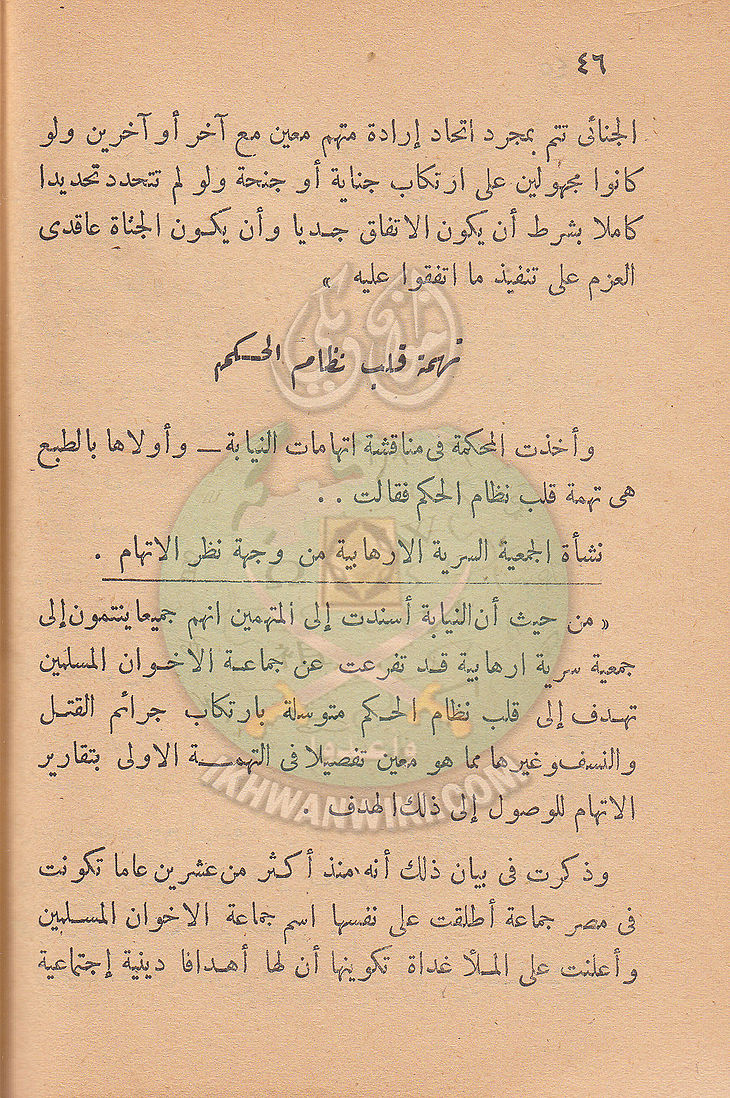 ٤٦
الجنائى تتم بمجرد اتحاد إرادة متهم معين مع آخر أو آخرين ولو
كانوا مجهولين على ارتكاب جناية أو جنحة ولو لم تتحدد تحديدا
كاملا بشرط أن يكون الاتفاق جديا وأن يكون الجناة عاقدى
العزم على تنفيذ ما اتفقوا عليه »
تهمة قلب نظام الحكم
وأخذت المحكمة فى مناقشة اتهامات النيابة — وأولاها بالطبع
هى تهمة قلب نظام الحكم فقالت . .
نشأة الجمعية السرية الارهابية من وجهة نظر الاتهام .
« من حيث أن النيابة أسندت إلى المتهمين انهم جميعا ينتمون إلى
جمعية سرية ارهابية قد تفرعت عن جماعة الاخوان المسلمين
تهدف إلى قلب نظام الحكم متوسلة بارتكاب جرائم القتل
والنسف وغيرها مما هو معين تفصيلا فى التهمة الاولى بتقارير
الاتهام للوصول إلى ذلك الهدف .
وذكرت فى بيان ذلك أنه منذ أكثر من عشرين عاما تكونت
فى مصر جماعة أطلقت على نفسها اسم جماعة الاخوان المسلمين
وأعلنت على الملأ غداة تكوينها أن لها أهدافا دينية إجتماعية
إخوان ويكي
وأعدوا
IKHWANWIKI.COM